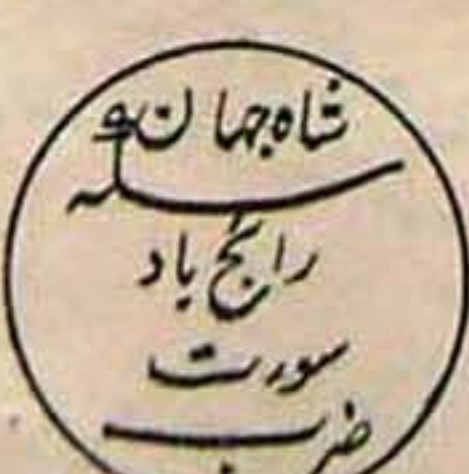 شاه جهان
سکه
رائج باد
سورت
ضرب